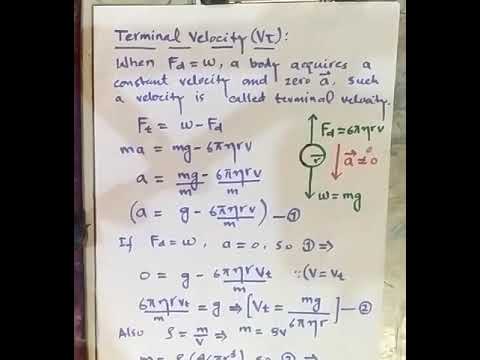 Terminal Velocity (Vt):
When Fd = w, a body acquires a
constant velocity and zero a⃗, such
a velocity is called terminal velocity.
Ft = w - Fd
ma = mg - 6πηrv
a = mg/m - 6πηrv/m
(a = g - 6πηrv/m) — ①
Fd = 6πηrv
r
a⃗ ≠ 0
w = mg
If Fd = w, a = 0, so ① ⇒
0 = g - 6πηrVt/m ∵ (V = Vt
6πηrVt/m = g ⇒ [Vt = mg/6πηr] — ②
Also ρ = m/v ⇒ m = ρv